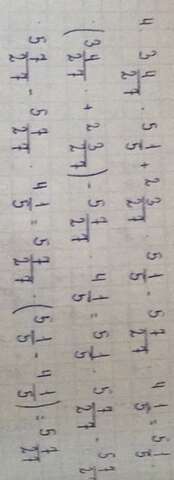 4. 3 4/27 · 5 1/5 + 2 3/27 · 5 1/5 - 5 7/27 · 4 1/5 = 5 1/5 ·
(3 4/27 · + 2 3/27) - 5 7/27 · 4 1/5 = 5 1/5 · 5 7/27 - 5 7/27
5 7/27 - 5 7/27 · 4 1/5 = 5 7/27 · (5 1/5 - 4 1/5) = 5 7/27